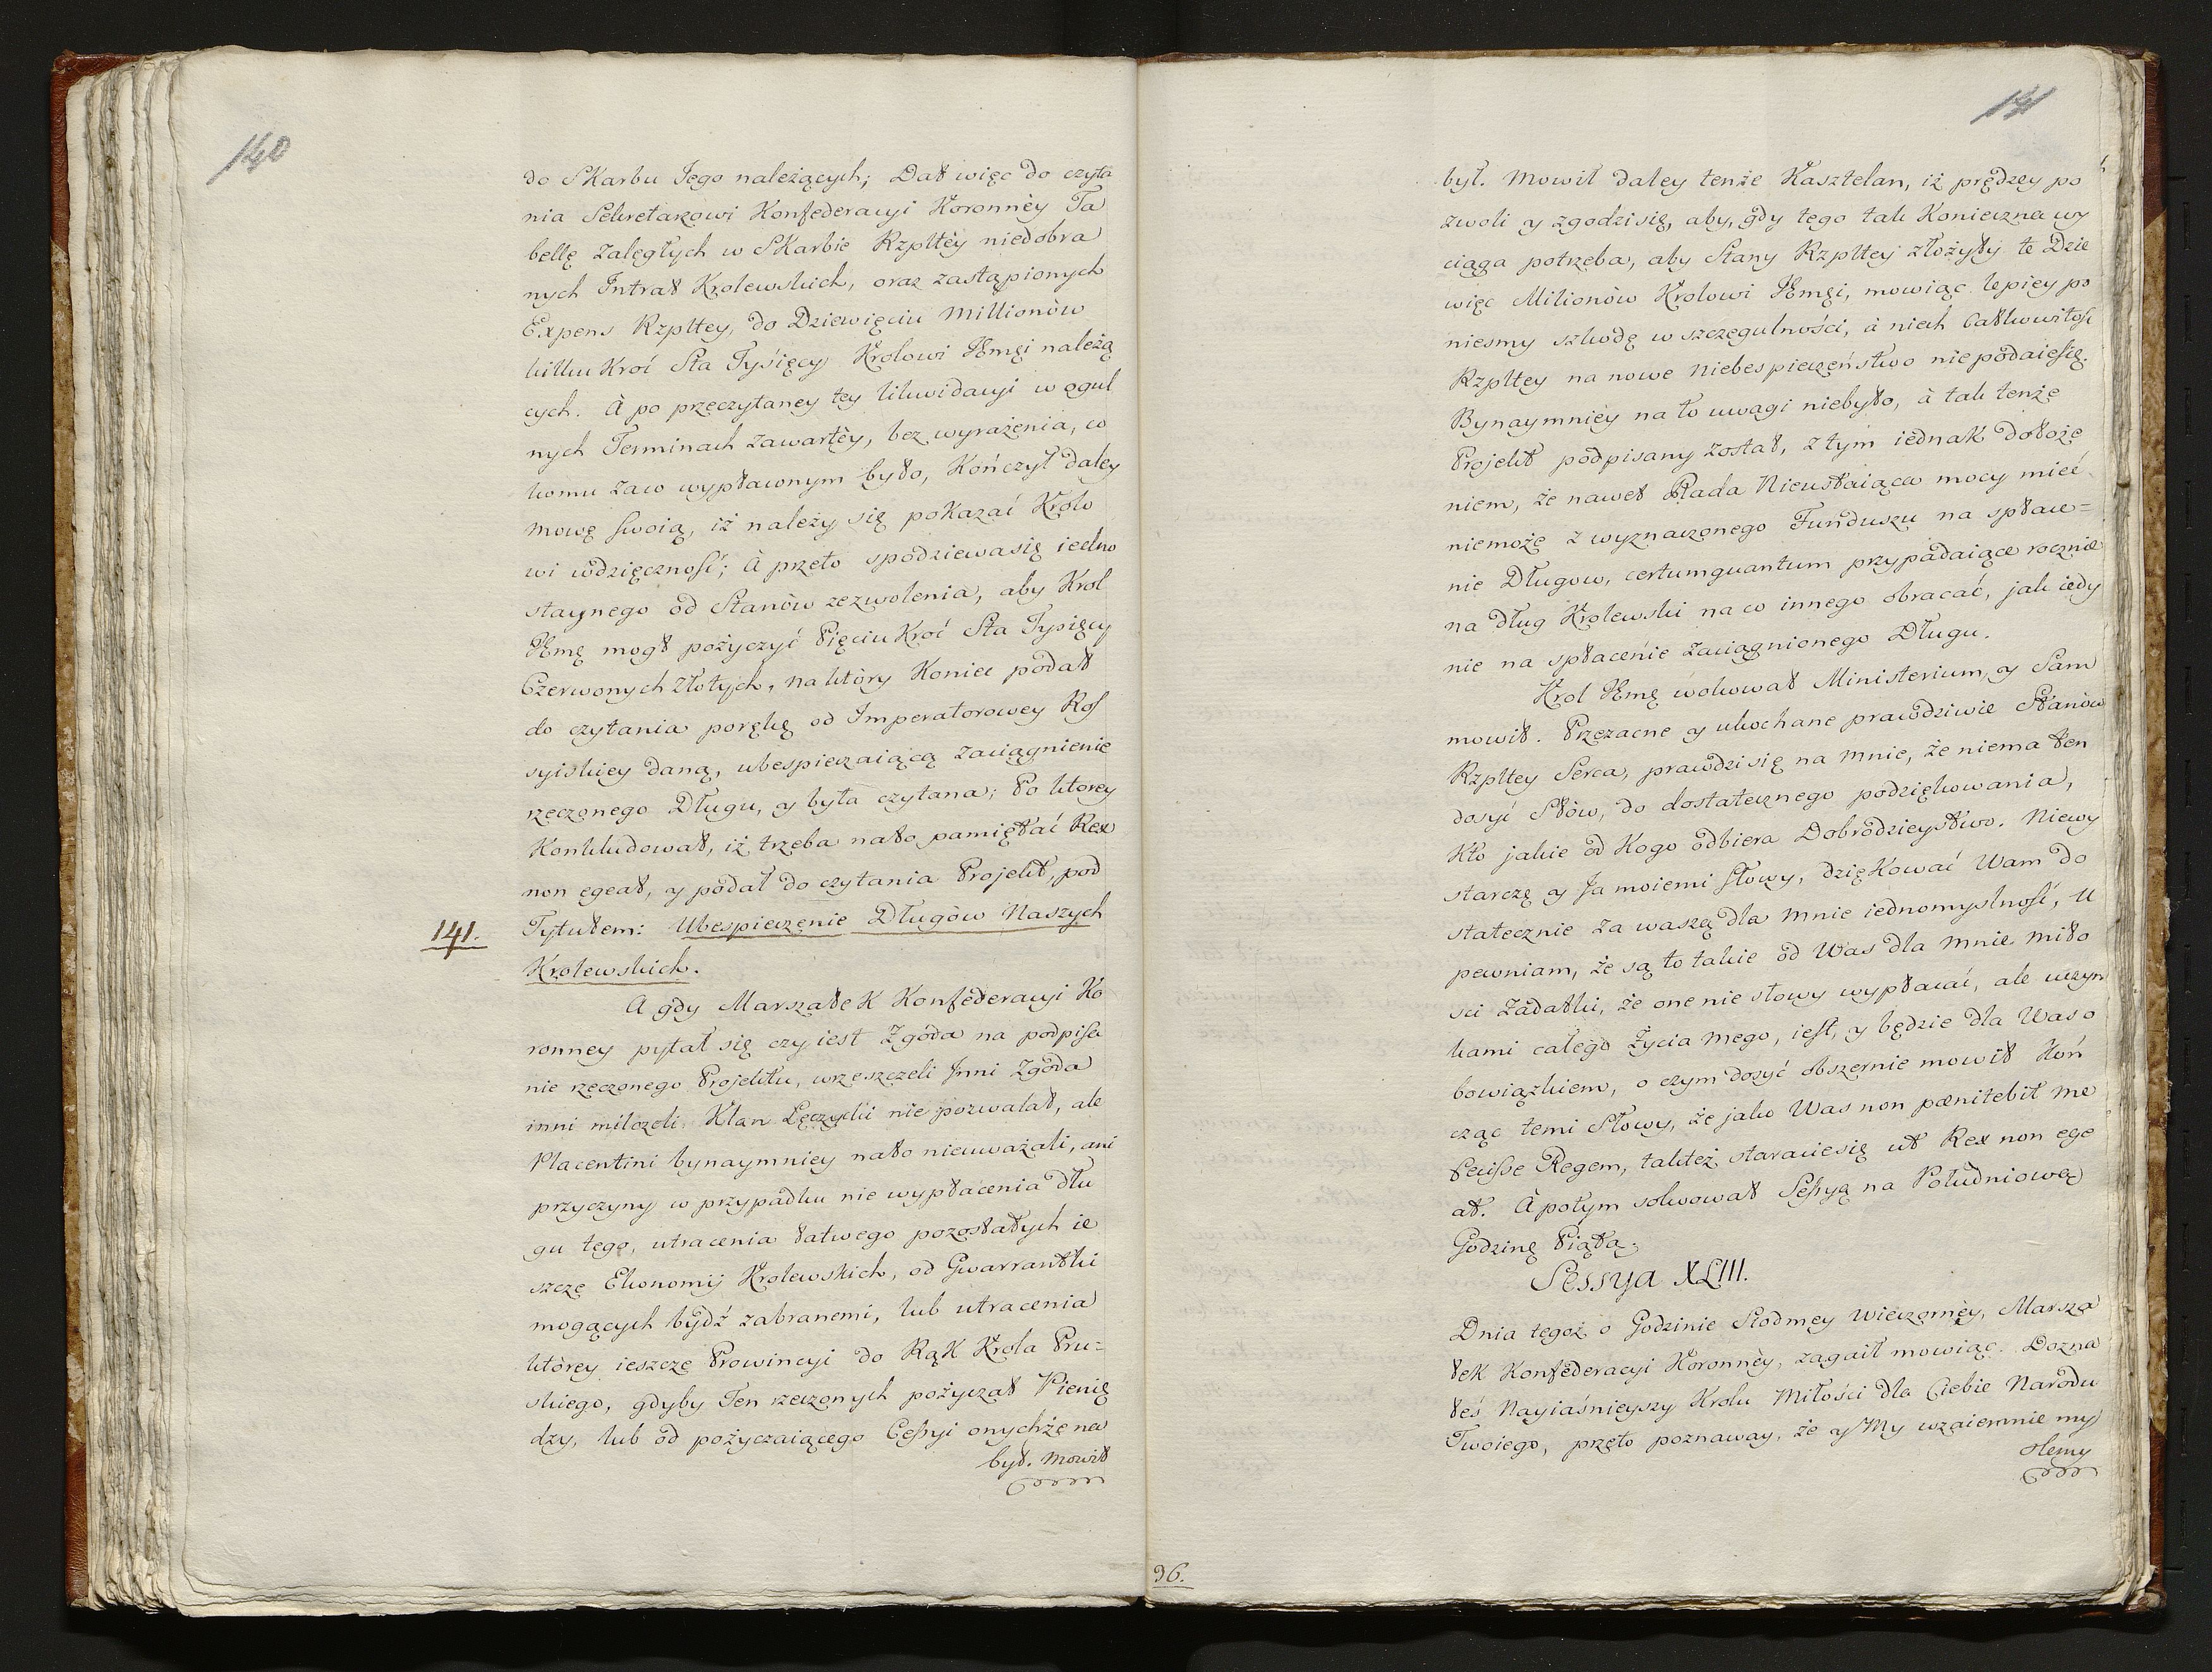 140
do Skarbu Jego należących; Dał więc do czyta
nia Sekretarzowi Konfederacyi Koronnèy Ta
bellę zaległych w Skarbie Rzpltèy niedobra
nych Intrat Krolewskich, oraz zastąpionych
Expens Rzpltey, do Dziewięciu Millionòw
kilku Kroć Sta Tysięcy Krolowi Jmęi należą
cych. A po przeczytaney tey likwidacyi w ogul
nych Terminach zawartèy, bez wyrażenia, co
komu zaco wypłaconym było, Kończył daley
mowę swoią, iż należy się pokazać Krolo
wi wdzięczność; A przeto spodziewasię iedno
staynego od Stanòw zezwolenia, aby Krol
Jmę mogł pożyczyć Pięciu Kroć Sta Tysięcy
Czerwonych Złotych, na ktòry Koniec podał
do czytania porękę od Imperatorowey Ros
syiskiey daną, ubespieczaiącą zaciągnienie
rzeczonego Długu, y była czytana; Po ktorey
Konkludował, iż trzeba nato pamiętać Rex
non egeat, y podał do czytania Projekt, pod
141. Tytułem: Ubespieczenie Długòw Naszych
Krolewskich.
A gdy Marszałek Konfederacyi Ko
ronney pytał się czy iest Zgoda na podpisa
nie rzeczonego Projektu, wrzeszczeli Jnni Zgoda
inni milczeli. Kłan Łęczycki nie pozwalał, ale
Placentini bynaymniey nato nieuważali, ani
przyczyny w przypadku nie wypłacenia dłu
gu tego, utracenia łatwego pozostałych ie
szcze Ekonomij Krolewskich, od Gwarrantki
mogących bydź zabranemi, lub utracenia
ktòrey ieszcze Prowincyi do Rąk Krola Pru=
skiego, gdyby Ten rzeczonych pożyczał Pienię
dzy, lub od pożyczaiącego Cessyi onychże na
był. Mowił
141
był. Mowił daley tenże Kasztelan, iż prędzey po
zwoli y zgodzisię, aby, gdy tego tak Konieczna wy
ciąga potrzeba, aby Stany Rzpltey złożyły te Dzie
więc Milionòw Krolowi Jmęi, mowiąc lepiey po
niesmy szkodę w szczegulności, à niech Całkowitość
Rzpltey na nowe Niebespieczeństwo niepodaiesię.
Bynaymnièy na to uwagi niebyło, à tak tenże
Projekt podpisany został, z tym iednak dołoże
niem, że nawet Rada Nieustaiąca mocy mieć
niemoże z wyznaczonego Funduszu na spłace=
nie Długow, certumquantum przypadaiące rocznie
na dług Krolewski na co innego obracać, jak iedy
nie na spłacenie zaciągnionego Długu.
Krol Jmę wokował Ministerium, y Sam
mowił. Przezacne y ukochane prawdziwie Stanòw
Rzpltey Serca, prawdzisię na Mnie, że niema ten
dosyć Słòw, do dostatecznego podziękowania,
Kto jakie od Kogo odbiera Dobrodzieystwo. Niewy
starczę y Ja moiemi słowy, dziękować Wam do
statecznie za waszą dla Mnie iednomyslność, U
pewniam, że są to takie od Was dla Mnie miło
sci Zadatki, że one nie słowy wypłacać, ale uczyn
kami całego Życia Mego, iest, y będzie dla Was o
bowiązkiem, o czym dosyć obszernie mowił Koń
cząc temi Słowy, że jako Was non pœnitebit me
fecisse Regem, takteż staraciesię ut Rex non ege
at. À potym solwował Sessyą na Południową
Godzinę Piątą.
Sessya XLIII.
Dnia tegoż o Godzinie Siodmey Wieczornèy, Marsza
łek Konfederacyi Koronnèy, zagaił mowiąc. Dozna
łeś Nayiaśnieyszy Krolu Miłości dla Ciebie Narodu
Twoiego, przeto poznaway, że y My wzaiemnie my
slemy
96.